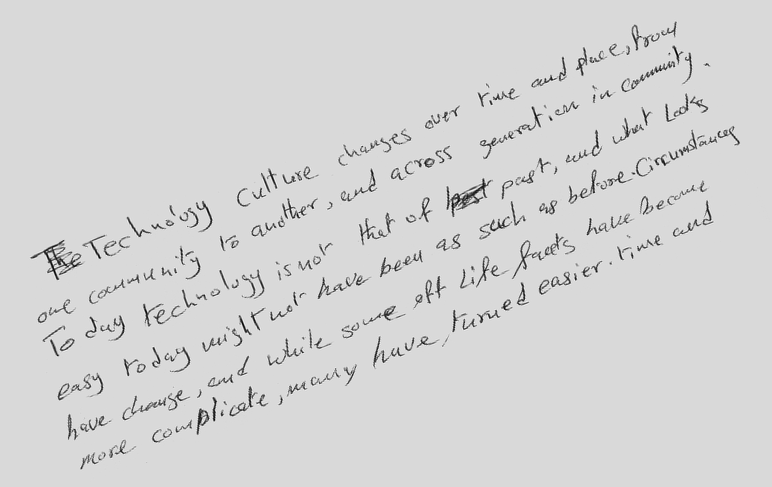 The Technology culture changes over time and place, from
one community to another, and across generation in community.
To day technology is not that of past past, and what looks
easy today might not have been as such as before. Circumstances
have change, and while some off life facts have become
more complicate, many have, turned easier. time and